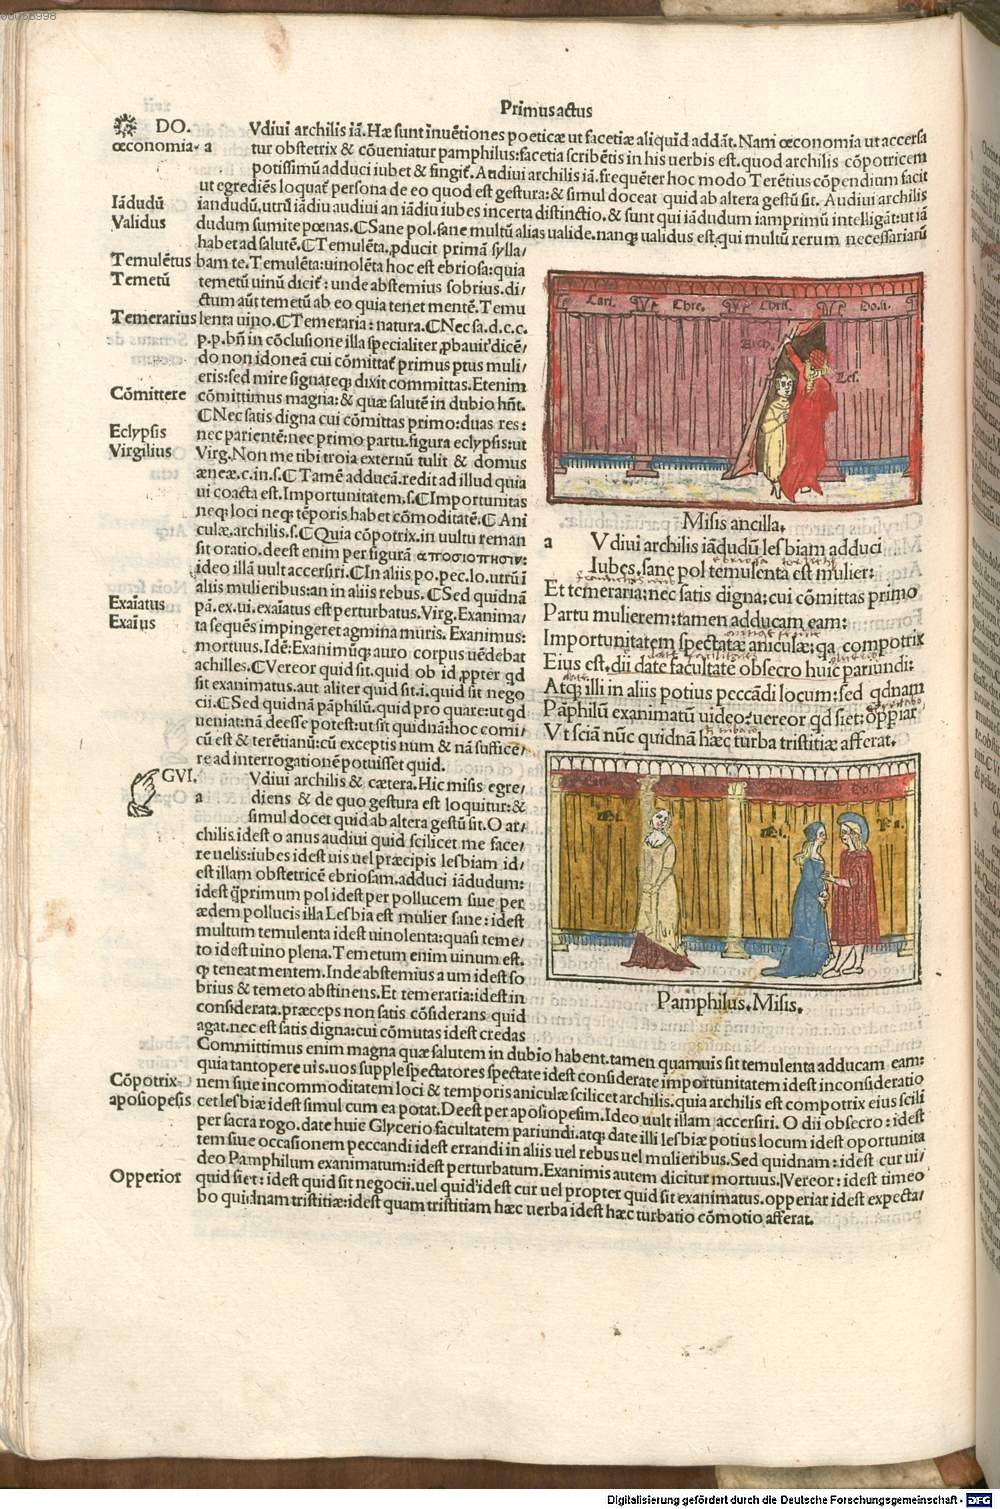 Primus actus
DO.
œconomia
a Vdiui archilis iā. Hæ sunt inuētiones poeticæ ut facetiæ aliquid addāt. Nam œconomia ut accersa
tur obstetrix & cōueniatur pamphilus: facetia scribētis in his uerbis est. quod archilis cōpotricem
potissimū adduci iubet & fingit̃. Audiui archilis iā. frequēter hoc modo Terētius cōpendium facit
ut egrediēs loquat̃ persona de eo quod est gestura: & simul doceat quid ab altera gestū sit. Audiui archilis
Iādudū
iandudū, utrū iādiu audiui an iādiu iubes incerta distinctio. & sunt qui iādudum iamprimū intelligāt: ut iā
Validus
dudum sumite pœnas. ℂSane pol. sane multū alias ualide. nanq; ualidus est, qui multū rerum necessariarū
habet ad salutē. ℂTemulēta, ꝓducit primā sylla/
Temulētus
bam te. Temulēta: uinolēta hoc est ebriosa: quia
Temetū
temetū uinū dicit̃: unde abstemius sobrius. di/
ctum aūt temetū ab eo quia tenet mentē. Temu
Temerarius
lenta uino. ℂTemeraria: natura. ℂNec sa. d. c. c.
p. p. bñ in cōclusione illa specialiter ꝓbauit̃ dicē/
do non idoneā cui cōmittat̃ primus ptus muli/
eris: sed mire signateq; dixit committas. Etenim
Cōmittere
cōmittimus magna: & quæ salutē in dubio hñt.
ℂNec satis digna cui cōmittas primo: duas res:
Eclypsis
nec parientē: nec primo partu. figura eclypsis: ut
Virgilius
Virg. Non me tibi troia externū tulit & domus
æneæ. c. in. s. ℂTamē adducā. redit ad illud quia
ui coacta est. Importunitatem. s. ℂImportunitas
neq; loci neq; tēporis habet cōmoditatē. ℂAni
culæ. archilis. s. ℂQuia cōpotrix. in uultu reman
sit oratio. deest enim per figurā ἀποσιοπησιν:
ideo illā uult accersiri. ℂIn aliis po. pec. lo. utrū ī
aliis mulieribus: an in aliis rebus. ℂSed quidnā
Exaīatus
pā. ex. ui. exaīatus est perturbatus. Virg. Exanima/
Exaīus
ta sequēs impingeret agmina muris. Exanimus:
mortuus. Idē: Exanimūq; auro corpus uēdebat
achilles. ℂVereor quid sit. quid ob id ꝓpter qd
sit exanimatus. aut aliter quid sit. i. quid sit nego
cii. ℂSed quidnā pāphilū. quid pro quare: ut qd
ueniat: nā deesse potest: ut sit quidnā: hoc comi/
cū est & terētianū: cū exceptis num & nā suffice/
re ad interrogationē potuisset quid.
Cari. Chre. Chris. Do. si.
Arch. Les.
Misis ancilla.
a Vdiui archilis iādudū lesbiam adduci
Iubes. sane pol temulenta est mulier:
Et temeraria; nec satis digna; cui cōmittas primo
Partu mulierem: tamen adducam eam:
Importunitatem spectatæ aniculæ; qa compotrix
Eius est. dii date facultate obsecro huic pariundi:
Atq; illi in aliis potius peccādi locum: sed qdnam
Pāphilū exanimatū uideo: uereor qd siet: oppiar
Vt sciā nūc quidnā hæc turba tristitiæ afferat.
Mi. Mi. Pa.
Pamphilus. Misis.
GVI.
a Vdiui archilis & cætera. Hic misis egre/
diens & de quo gestura est loquitur: &
simul docet quid ab altera gestū sit. O ar/
chilis. idest o anus audiui quid scilicet me face/
re uelis: iubes idest uis uel præcipis lesbiam id/
est illam obstetricē ebriosam. adduci iādudum:
idest q̄primum pol idest per pollucem siue per
ædem pollucis illa Lesbia est mulier sane: idest
multum temulenta idest uinolenta: quasi teme/
to idest uino plena. Temetum enim uinum est.
ꝙ teneat mentem. Inde abstemius a um idest so
brius & temeto abstinens. Et temeraria: idest in
considerata. præceps non satis cōsiderans quid
agat. nec est satis digna: cui cōmutas idest credas
Committimus enim magna quæ salutem in dubio habent. tamen quamuis sit temulenta adducam eam:
quia tantopere uis. uos supple spectatores spectate idest considerate importunitatem idest inconsideratio
Cōpotrix
nem siue incommoditatem loci & temporis aniculæ scilicet archilis. quia archilis est compotrix eius scili
aposiopesis
cet lesbiæ idest simul cum ea potat. Deest per aposiopesim. Ideo uult illam accersiri. O dii obsecro: idest
per sacra rogo. date huie Glycerio facultatem pariundi. atq; date illi lesbiæ potius locum idest oportunita
tem siue occasionem peccandi idest errandi in aliis uel rebus uel mulieribus. Sed quidnam: idest cur ui/
deo Pamphilum exanimatum: idest perturbatum. Exanimis autem dicitur mortuus. Vereor: idest timeo
Opperior
quid siet: idest quid sit negocii. uel quid idest cur uel propter quid sit exanimatus. opperiar idest expecta/
bo quidnam tristitiæ: idest quam tristitiam hæc uerba idest hæc turbatio cōmotio afferat.
Digitalisierung gefördert durch die Deutsche Forschungsgemeinschaft - DFG